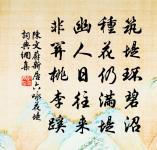 筑堤环碧沼
种花仍满堤
幽人日往来
非关桃李蹊
陈文蔚新居六咏花堤
词典网集